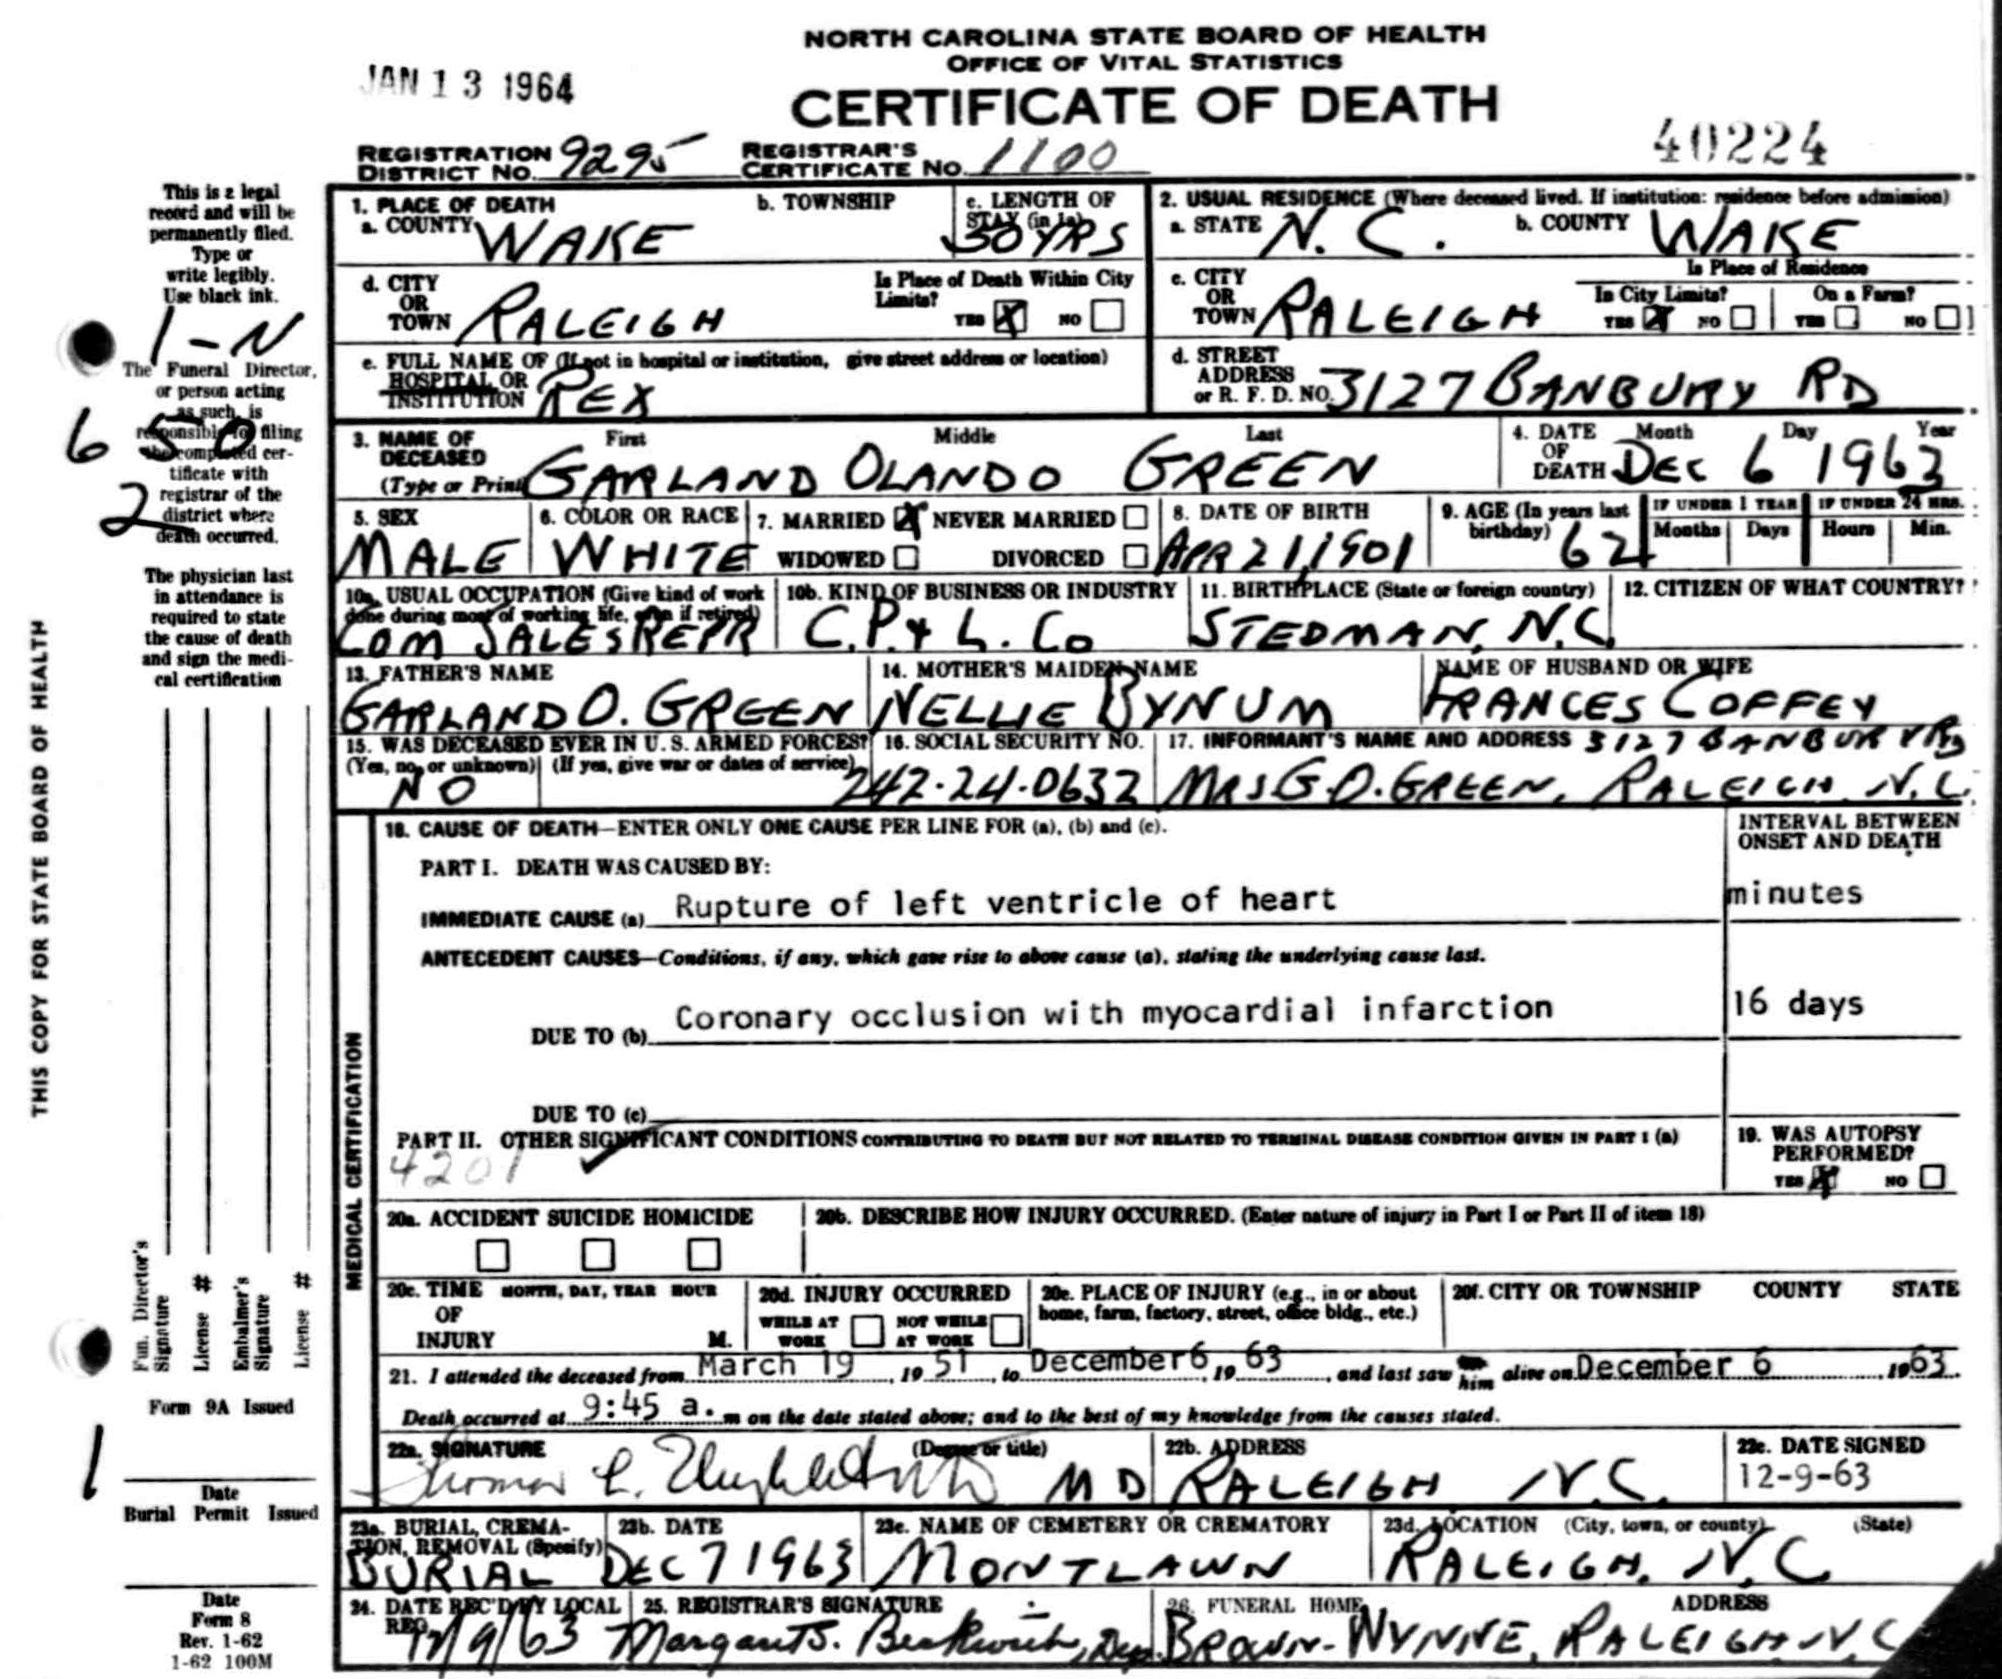 NORTH CAROLINA STATE BOARD OF HEALTH
OFFICE OF VITAL STATISTICS
JAN 13 1964
CERTIFICATE OF DEATH
40224
REGISTRATION DISTRICT NO. 9295 REGISTRAR'S CERTIFICATE NO. 1100
THIS COPY FOR STATE BOARD OF HEALTH
This is a legal
record and will be
permanently filed.
Type or
write legibly.
Use black ink.
1-N
The Funeral Director,
or person acting
as such, is
responsible for filing
the completed cer-
tificate with
registrar of the
district where
death occurred.
6 50
2
The physician last
in attendance is
required to state
the cause of death
and sign the medi-
cal certification
Fun. Director's Signature
License #
Embalmer's Signature
License #
Form 9A Issued
1
Date
Burial Permit Issued
Date
Form 8
Rev. 1-62
1-62 100M
1. PLACE OF DEATH
a. COUNTY WAKE
b. TOWNSHIP
c. LENGTH OF STAY (in 1a) 30 YRS
2. USUAL RESIDENCE (Where deceased lived. If institution: residence before admission)
a. STATE N. C. b. COUNTY WAKE
d. CITY OR TOWN RALEIGH
Is Place of Death Within City Limits? YES X NO
c. CITY OR TOWN RALEIGH
Is Place of Residence
In City Limits? YES X NO On a Farm? YES NO
e. FULL NAME OF (If not in hospital or institution, give street address or location)
HOSPITAL OR INSTITUTION REX
d. STREET ADDRESS or R. F. D. NO. 3127 BANBURY RD
3. NAME OF DECEASED (Type or Print) First Middle Last
GARLAND OLANDO GREEN
4. DATE OF DEATH Month Day Year
DEC 6 1963
5. SEX MALE
6. COLOR OR RACE WHITE
7. MARRIED X NEVER MARRIED
WIDOWED DIVORCED
8. DATE OF BIRTH APR 21, 1901
9. AGE (In years last birthday) 62
IF UNDER 1 YEAR Months Days
IF UNDER 24 HRS. Hours Min.
10a. USUAL OCCUPATION (Give kind of work done during most of working life, even if retired)
COM SALES REPR
10b. KIND OF BUSINESS OR INDUSTRY
C. P. & L. Co
11. BIRTHPLACE (State or foreign country)
STEDMAN, N.C.
12. CITIZEN OF WHAT COUNTRY?
13. FATHER'S NAME
GARLAND O. GREEN
14. MOTHER'S MAIDEN NAME
NELLIE BYNUM
NAME OF HUSBAND OR WIFE
FRANCES COFFEY
15. WAS DECEASED EVER IN U. S. ARMED FORCES?
(Yes, no, or unknown) (If yes, give war or dates of service)
NO
16. SOCIAL SECURITY NO.
242-24-0632
17. INFORMANT'S NAME AND ADDRESS 3127 BANBURY RD
MRS G.O. GREEN, RALEIGH N.C.
MEDICAL CERTIFICATION
18. CAUSE OF DEATH—ENTER ONLY ONE CAUSE PER LINE FOR (a), (b) and (c).
INTERVAL BETWEEN ONSET AND DEATH
PART I. DEATH WAS CAUSED BY:
IMMEDIATE CAUSE (a) Rupture of left ventricle of heart minutes
ANTECEDENT CAUSES—Conditions, if any, which gave rise to above cause (a), stating the underlying cause last.
DUE TO (b) Coronary occlusion with myocardial infarction 16 days
DUE TO (c)
PART II. OTHER SIGNIFICANT CONDITIONS CONTRIBUTING TO DEATH BUT NOT RELATED TO TERMINAL DISEASE CONDITION GIVEN IN PART I (a)
4201
19. WAS AUTOPSY PERFORMED?
YES X NO
20a. ACCIDENT SUICIDE HOMICIDE
20b. DESCRIBE HOW INJURY OCCURRED. (Enter nature of injury in Part I or Part II of item 18)
20c. TIME OF INJURY MONTH, DAY, YEAR HOUR M.
20d. INJURY OCCURRED
WHILE AT WORK NOT WHILE AT WORK
20e. PLACE OF INJURY (e.g., in or about home, farm, factory, street, office bldg., etc.)
20f. CITY OR TOWNSHIP COUNTY STATE
21. I attended the deceased from March 19, 19 51, to December 6, 19 63, and last saw him alive on December 6 1963.
Death occurred at 9:45 a. m on the date stated above; and to the best of my knowledge from the causes stated.
22a. SIGNATURE (Degree or title)
Thomas L. MD
22b. ADDRESS
RALEIGH N.C.
22c. DATE SIGNED
12-9-63
23a. BURIAL, CREMA-
TION, REMOVAL (Specify)
BURIAL
23b. DATE
DEC 7 1963
23c. NAME OF CEMETERY OR CREMATORY
MONTLAWN
23d. LOCATION (City, town, or county) (State)
RALEIGH, N.C.
24. DATE REC'D BY LOCAL REG.
12/9/63
25. REGISTRAR'S SIGNATURE
Margaret S. Dep.
26. FUNERAL HOME ADDRESS
BROWN-WYNNE, RALEIGH N C